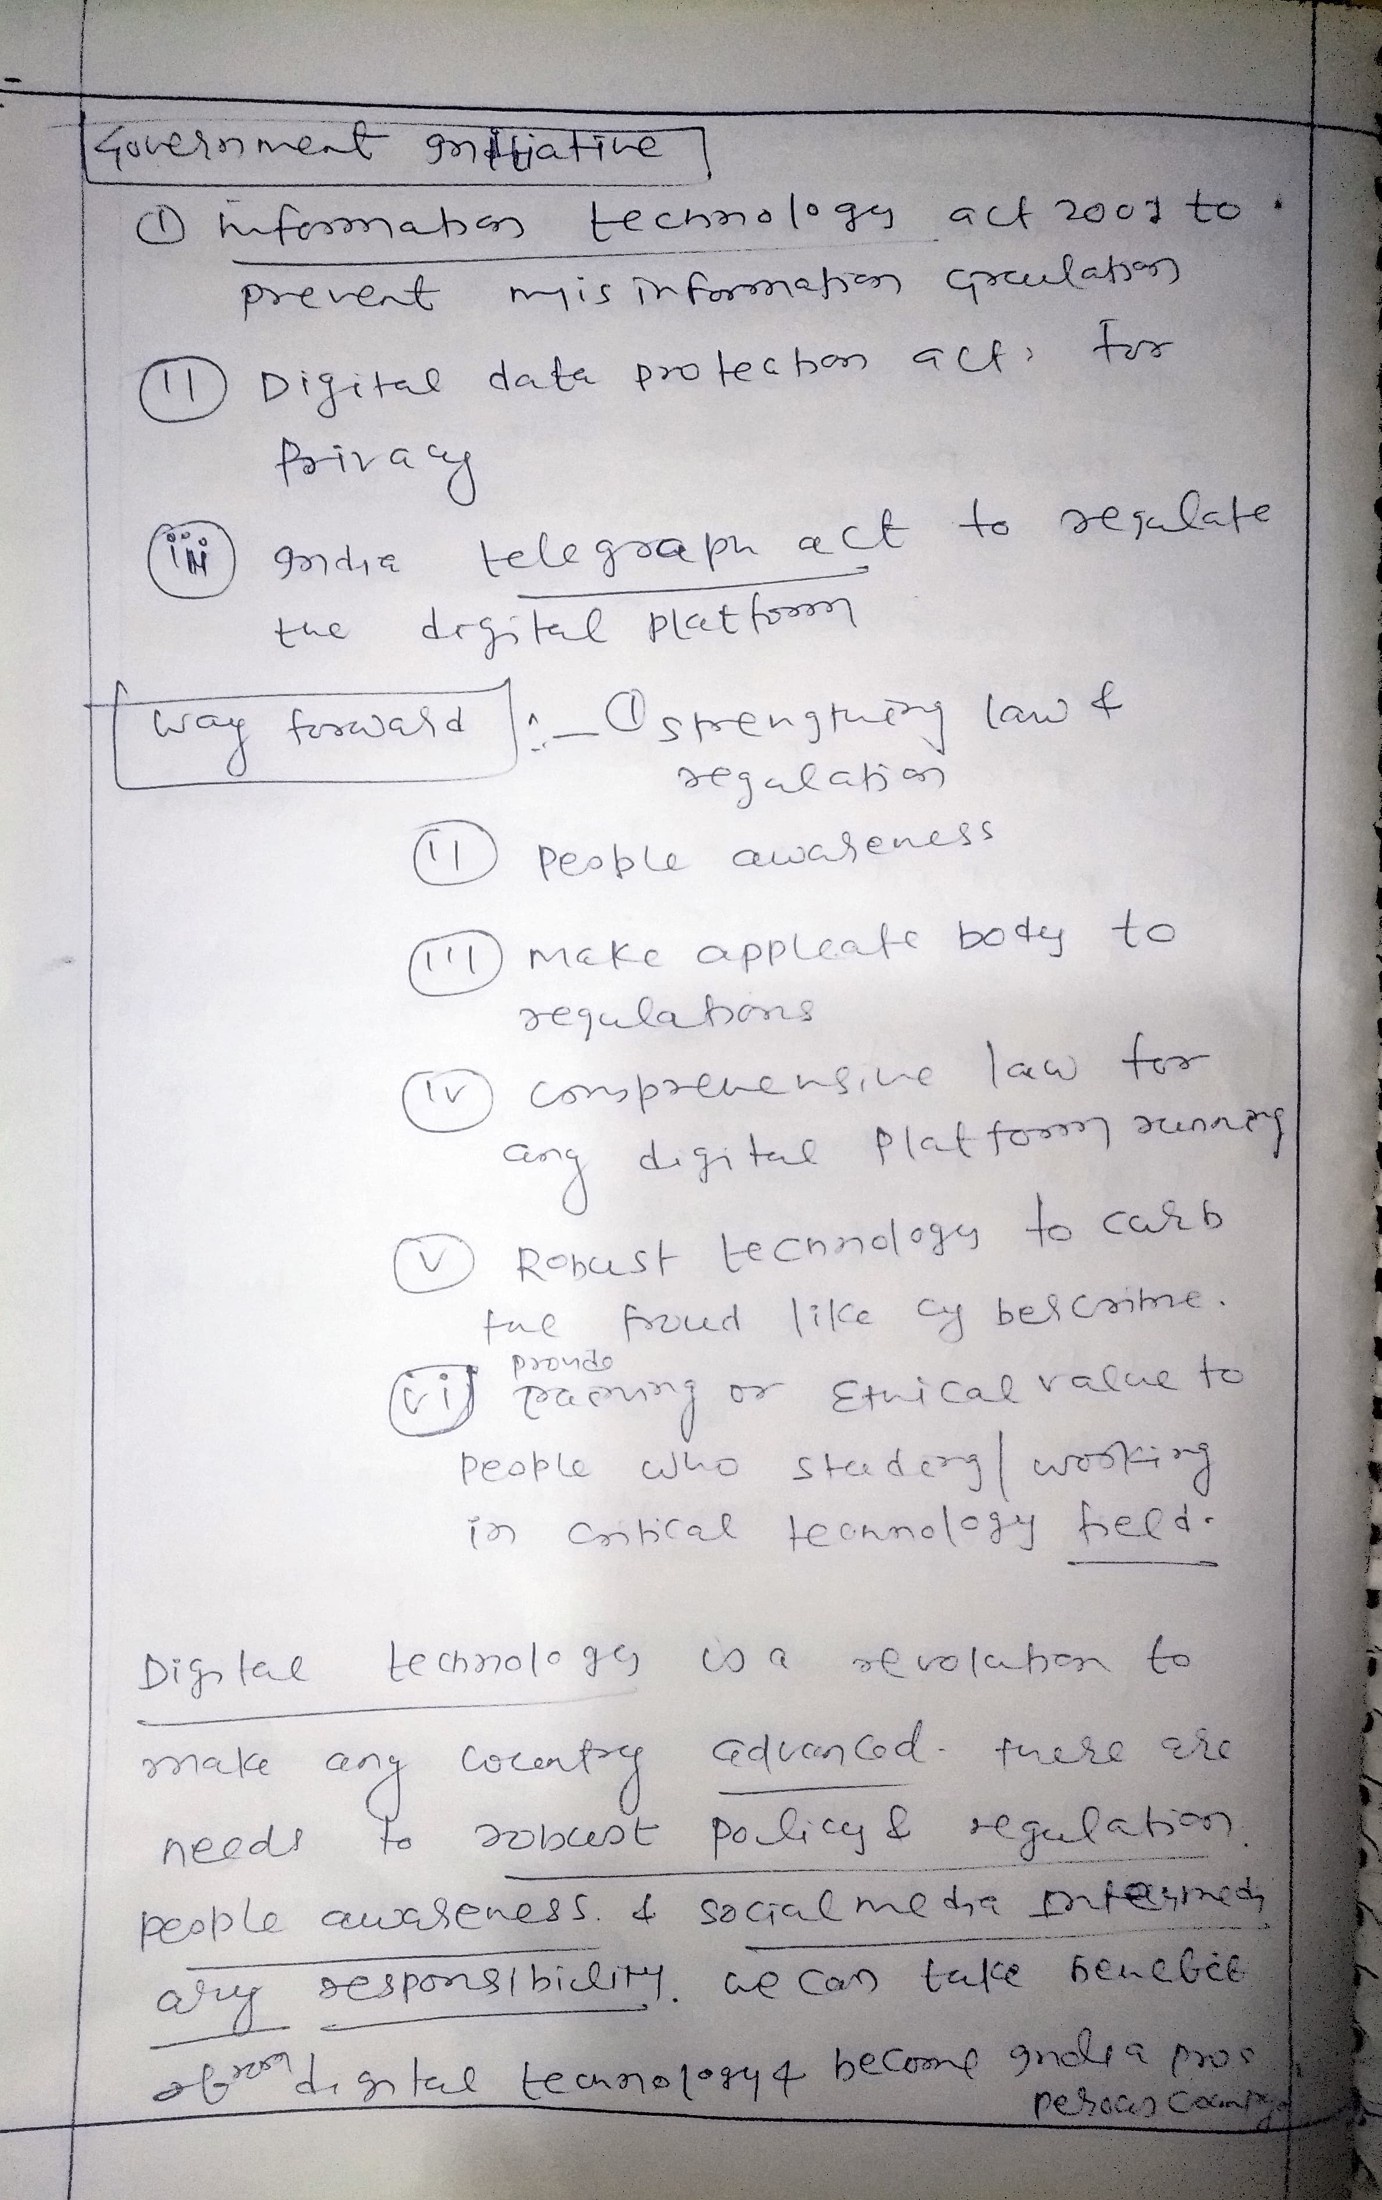 Government Initiative
① information technology act 2001 to
prevent misinformation circulation
(ii) Digital data protection act, for
privacy
(iii) India telegraph act to regulate
the digital platform
Way forward :- ① strengthing law &
regulation
(ii) people awareness
(iii) make appleate body to
regulations
(iv) comprehensive law for
any digital platform running
(v) Robust technology to curb
the froud like cybercrime.
provide
(vi) training or Ethical value to
people who studing/working
in critical technology field.
Digital technology is a revolution to
make any country advanced. there are
needs to robust policy & regulation.
people awareness. & social media intermedi
ary responsibility. we can take benefit
from digital technology & become India pros
perous country.